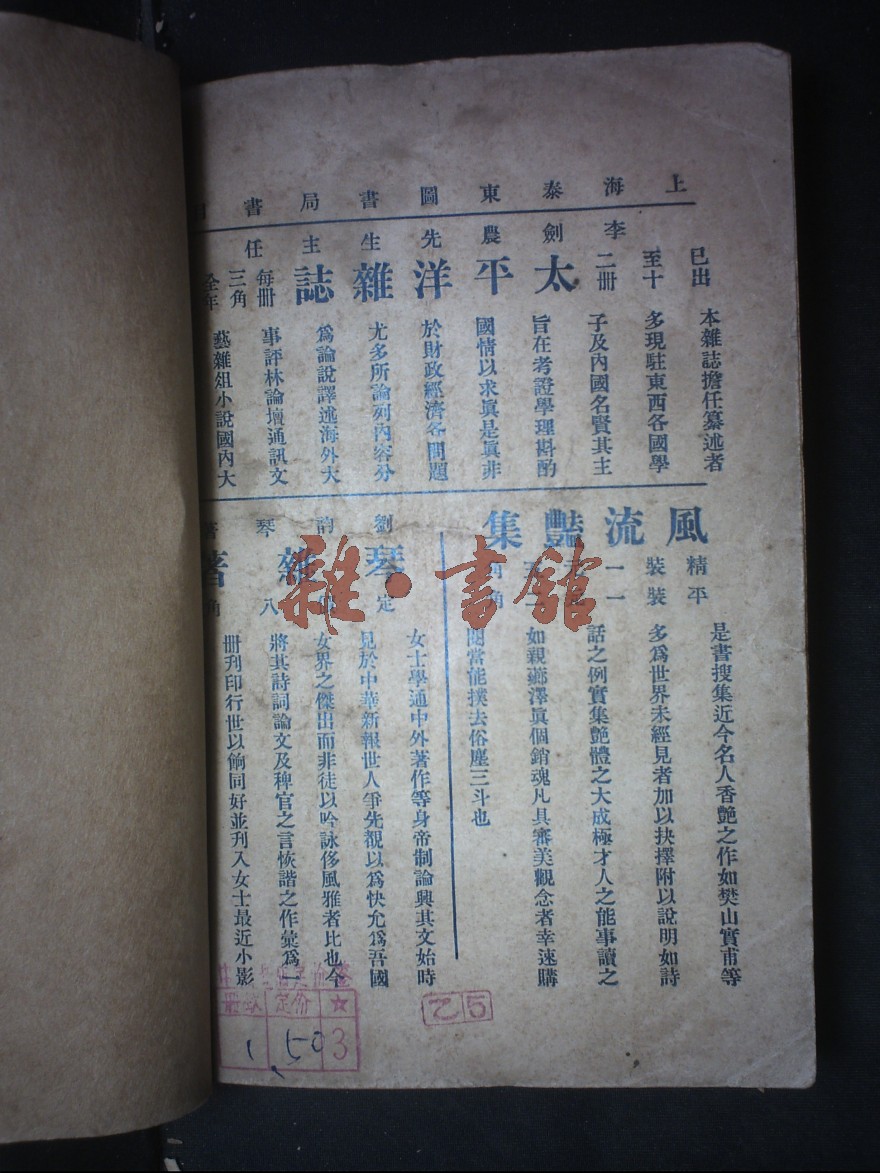 上海泰東圖書局書
已出至十二冊
李劍農先生主任
太平洋雜誌
每冊三角
全年
本雜誌擔任纂述者
多現駐東西各國學
子及內國名賢其主
旨在考證學理斟酌
國情以求眞是眞非
於財政經濟各問題
尤多所論列內容分
爲論說譯述海外大
事評林論壇通訊文
藝雜俎小說國內大
風流艷集
精裝一
平裝一
是書搜集近今名人香艷之作如樊山實甫等
多爲世界未經見者加以抉擇附以說明如詩
話之例實集艷體之大成極才人之能事讀之
如親薌澤眞個銷魂凡具審美觀念者幸速購
閱當能撲去俗塵三斗也
劉韵琴著
琴雜著
定 八角
女士學通中外著作等身帝制論興其文始時
見於中華新報世人爭先覩以爲快允爲吾國
女界之傑出而非徒以吟詠侈風雅者比也今
將其詩詞論文及稗官之言恢諧之作彙爲一
冊刊印行世以餉同好並刊入女士最近小影
雜·書館
乙5
冊数 定价 ☆
1 .50 3